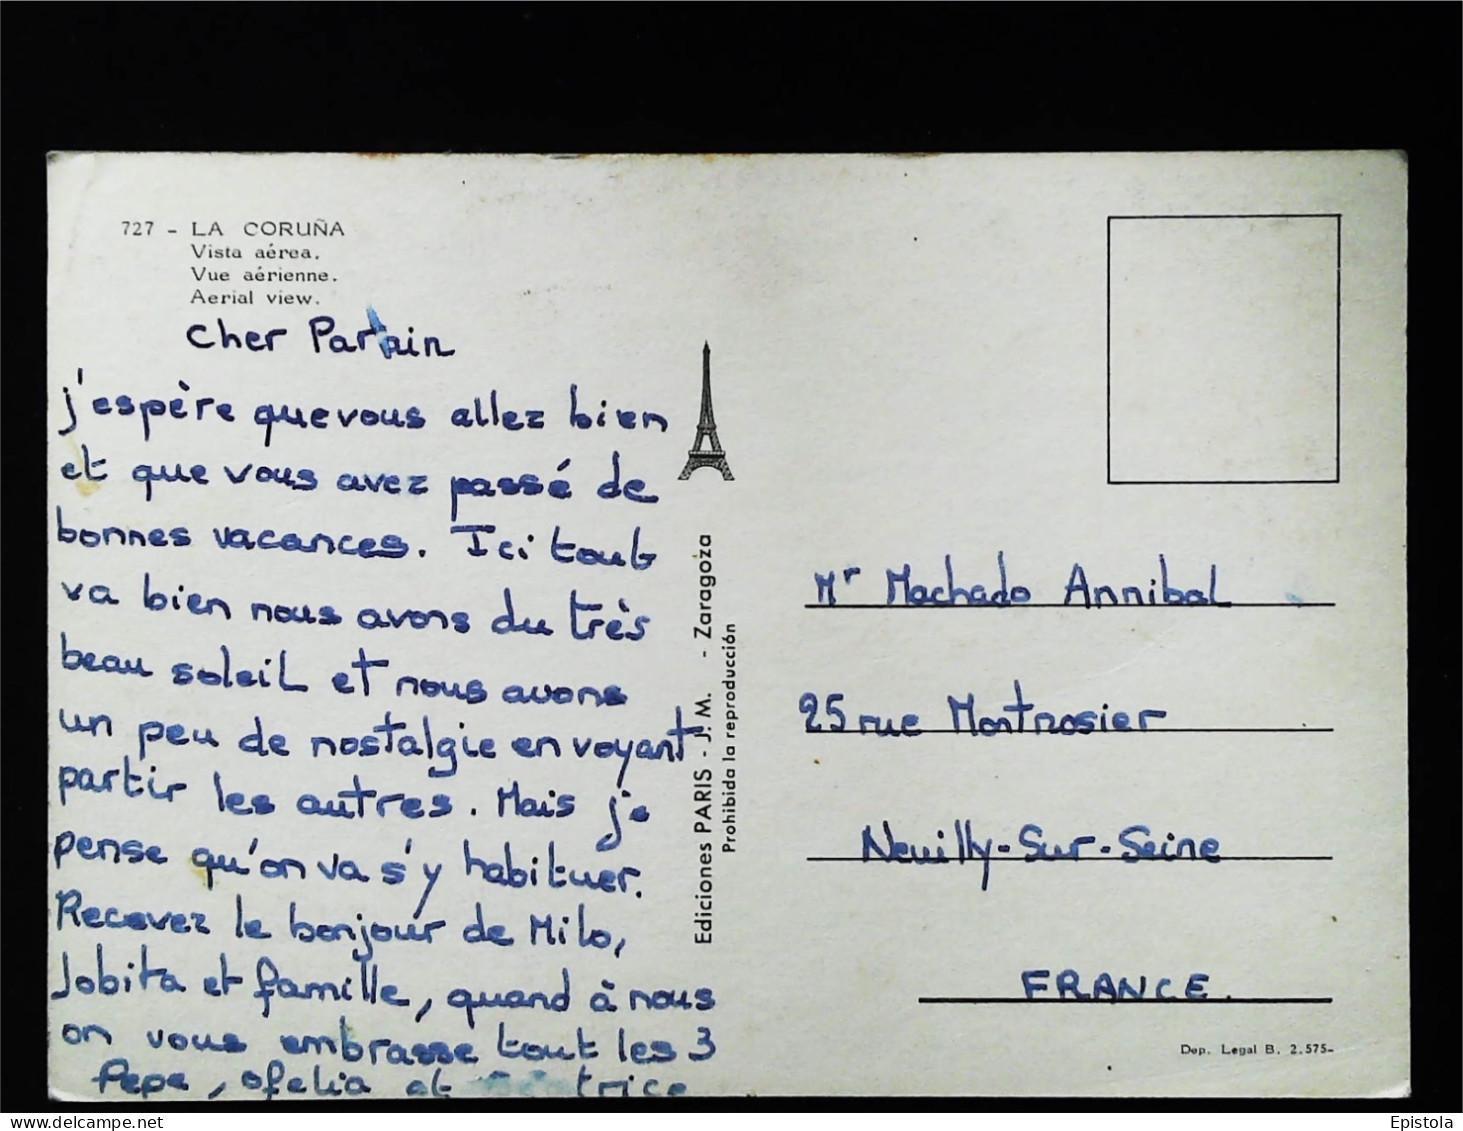 727 - LA CORUÑA
Vista aérea.
Vue aérienne.
Aerial view.
Cher Parrain
j'espère que vous allez bien
et que vous avez passé de
bonnes vacances. Ici tout
va bien nous avons du très
beau soleil et nous avons
un peu de nostalgie en voyant
partir les autres. Mais je
pense qu'on va s'y habituer.
Recevez le bonjour de Milo,
Jobita et famille, quand à nous
on vous embrasse tout les 3
Pepe, Ofelia et
Ediciones PARIS - J. M. - Zaragoza
Prohibida la reproducción
Mr Machado Annibal
25 rue Montrosier
Neuilly-Sur-Seine
FRANCE.
Dep. Legal B. 2.575-
Epistola